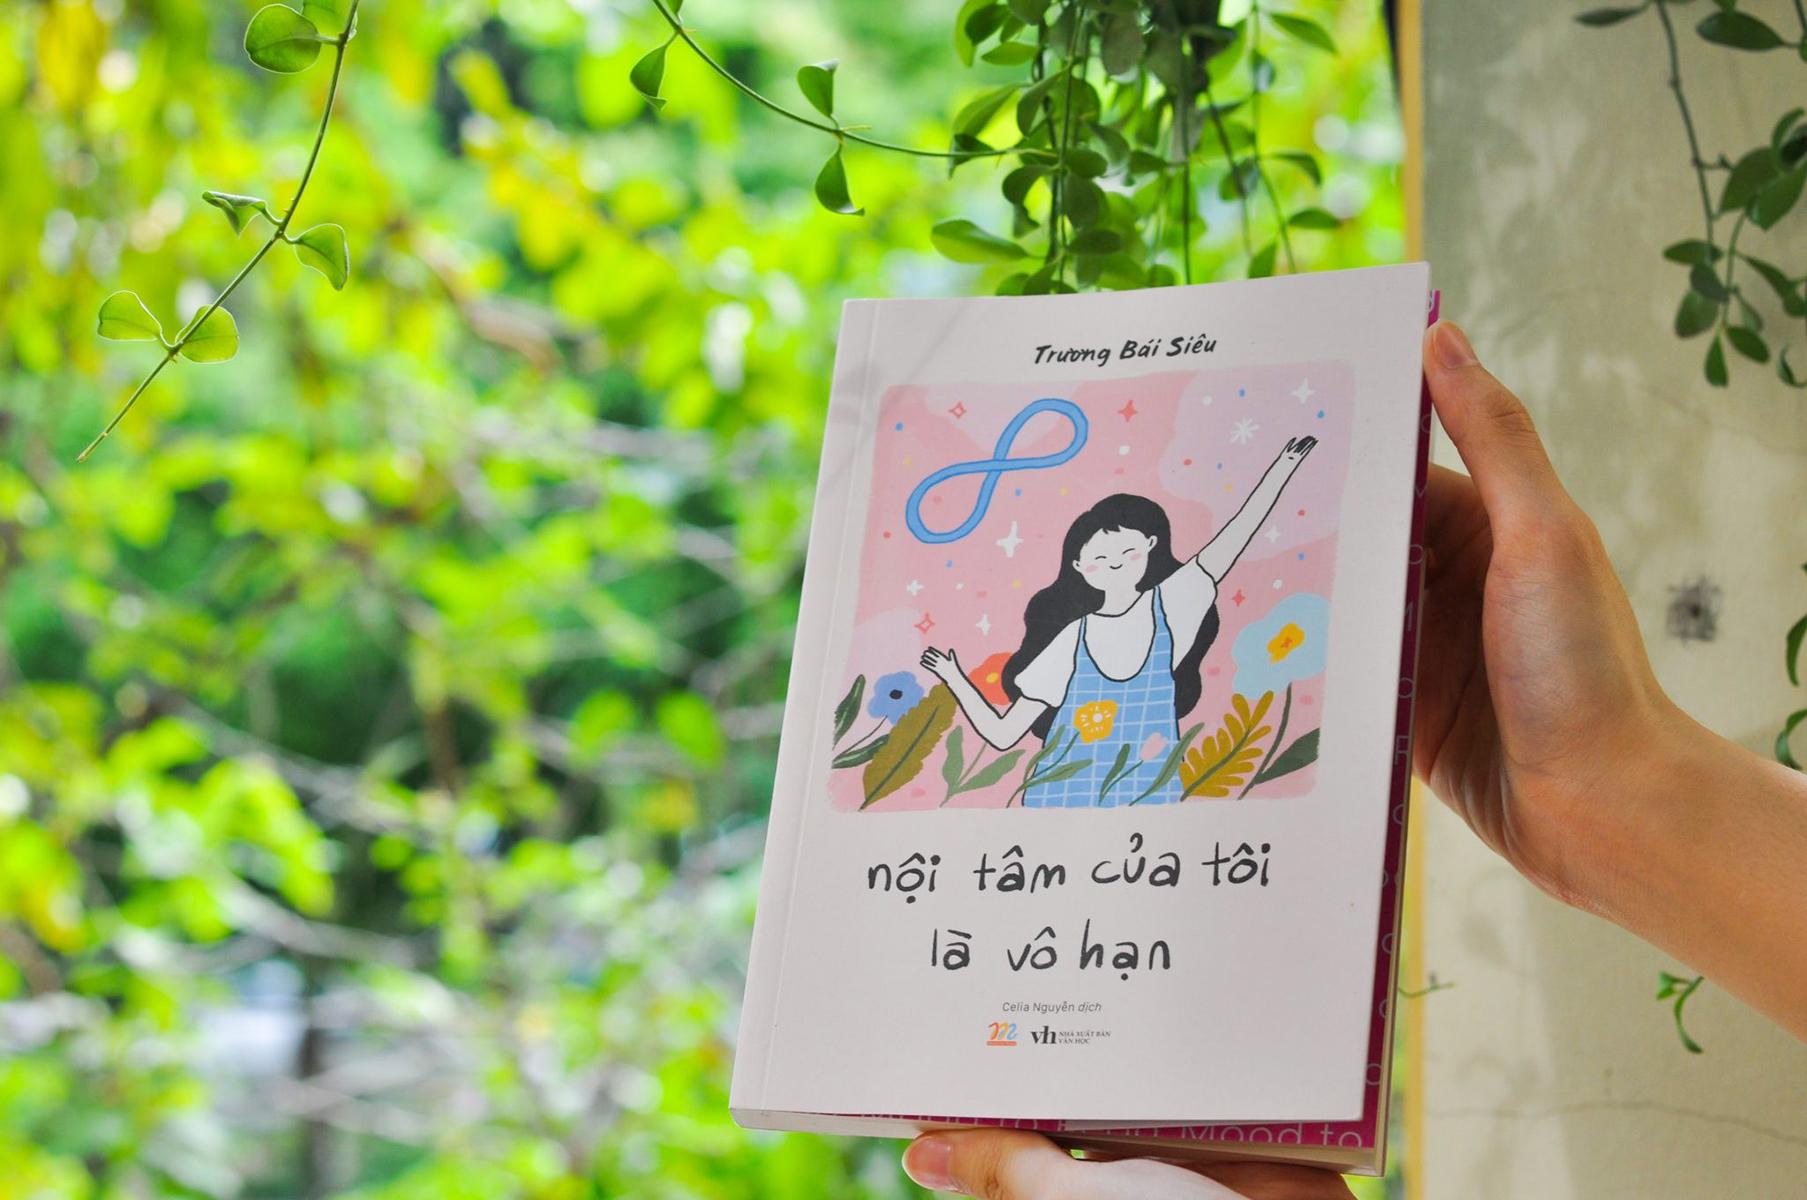 Trương Bái Siêu
nội tâm của tôi
là vô hạn
Celia Nguyễn dịch
vh NHÀ XUẤT BẢN
VĂN HỌC
Mood to